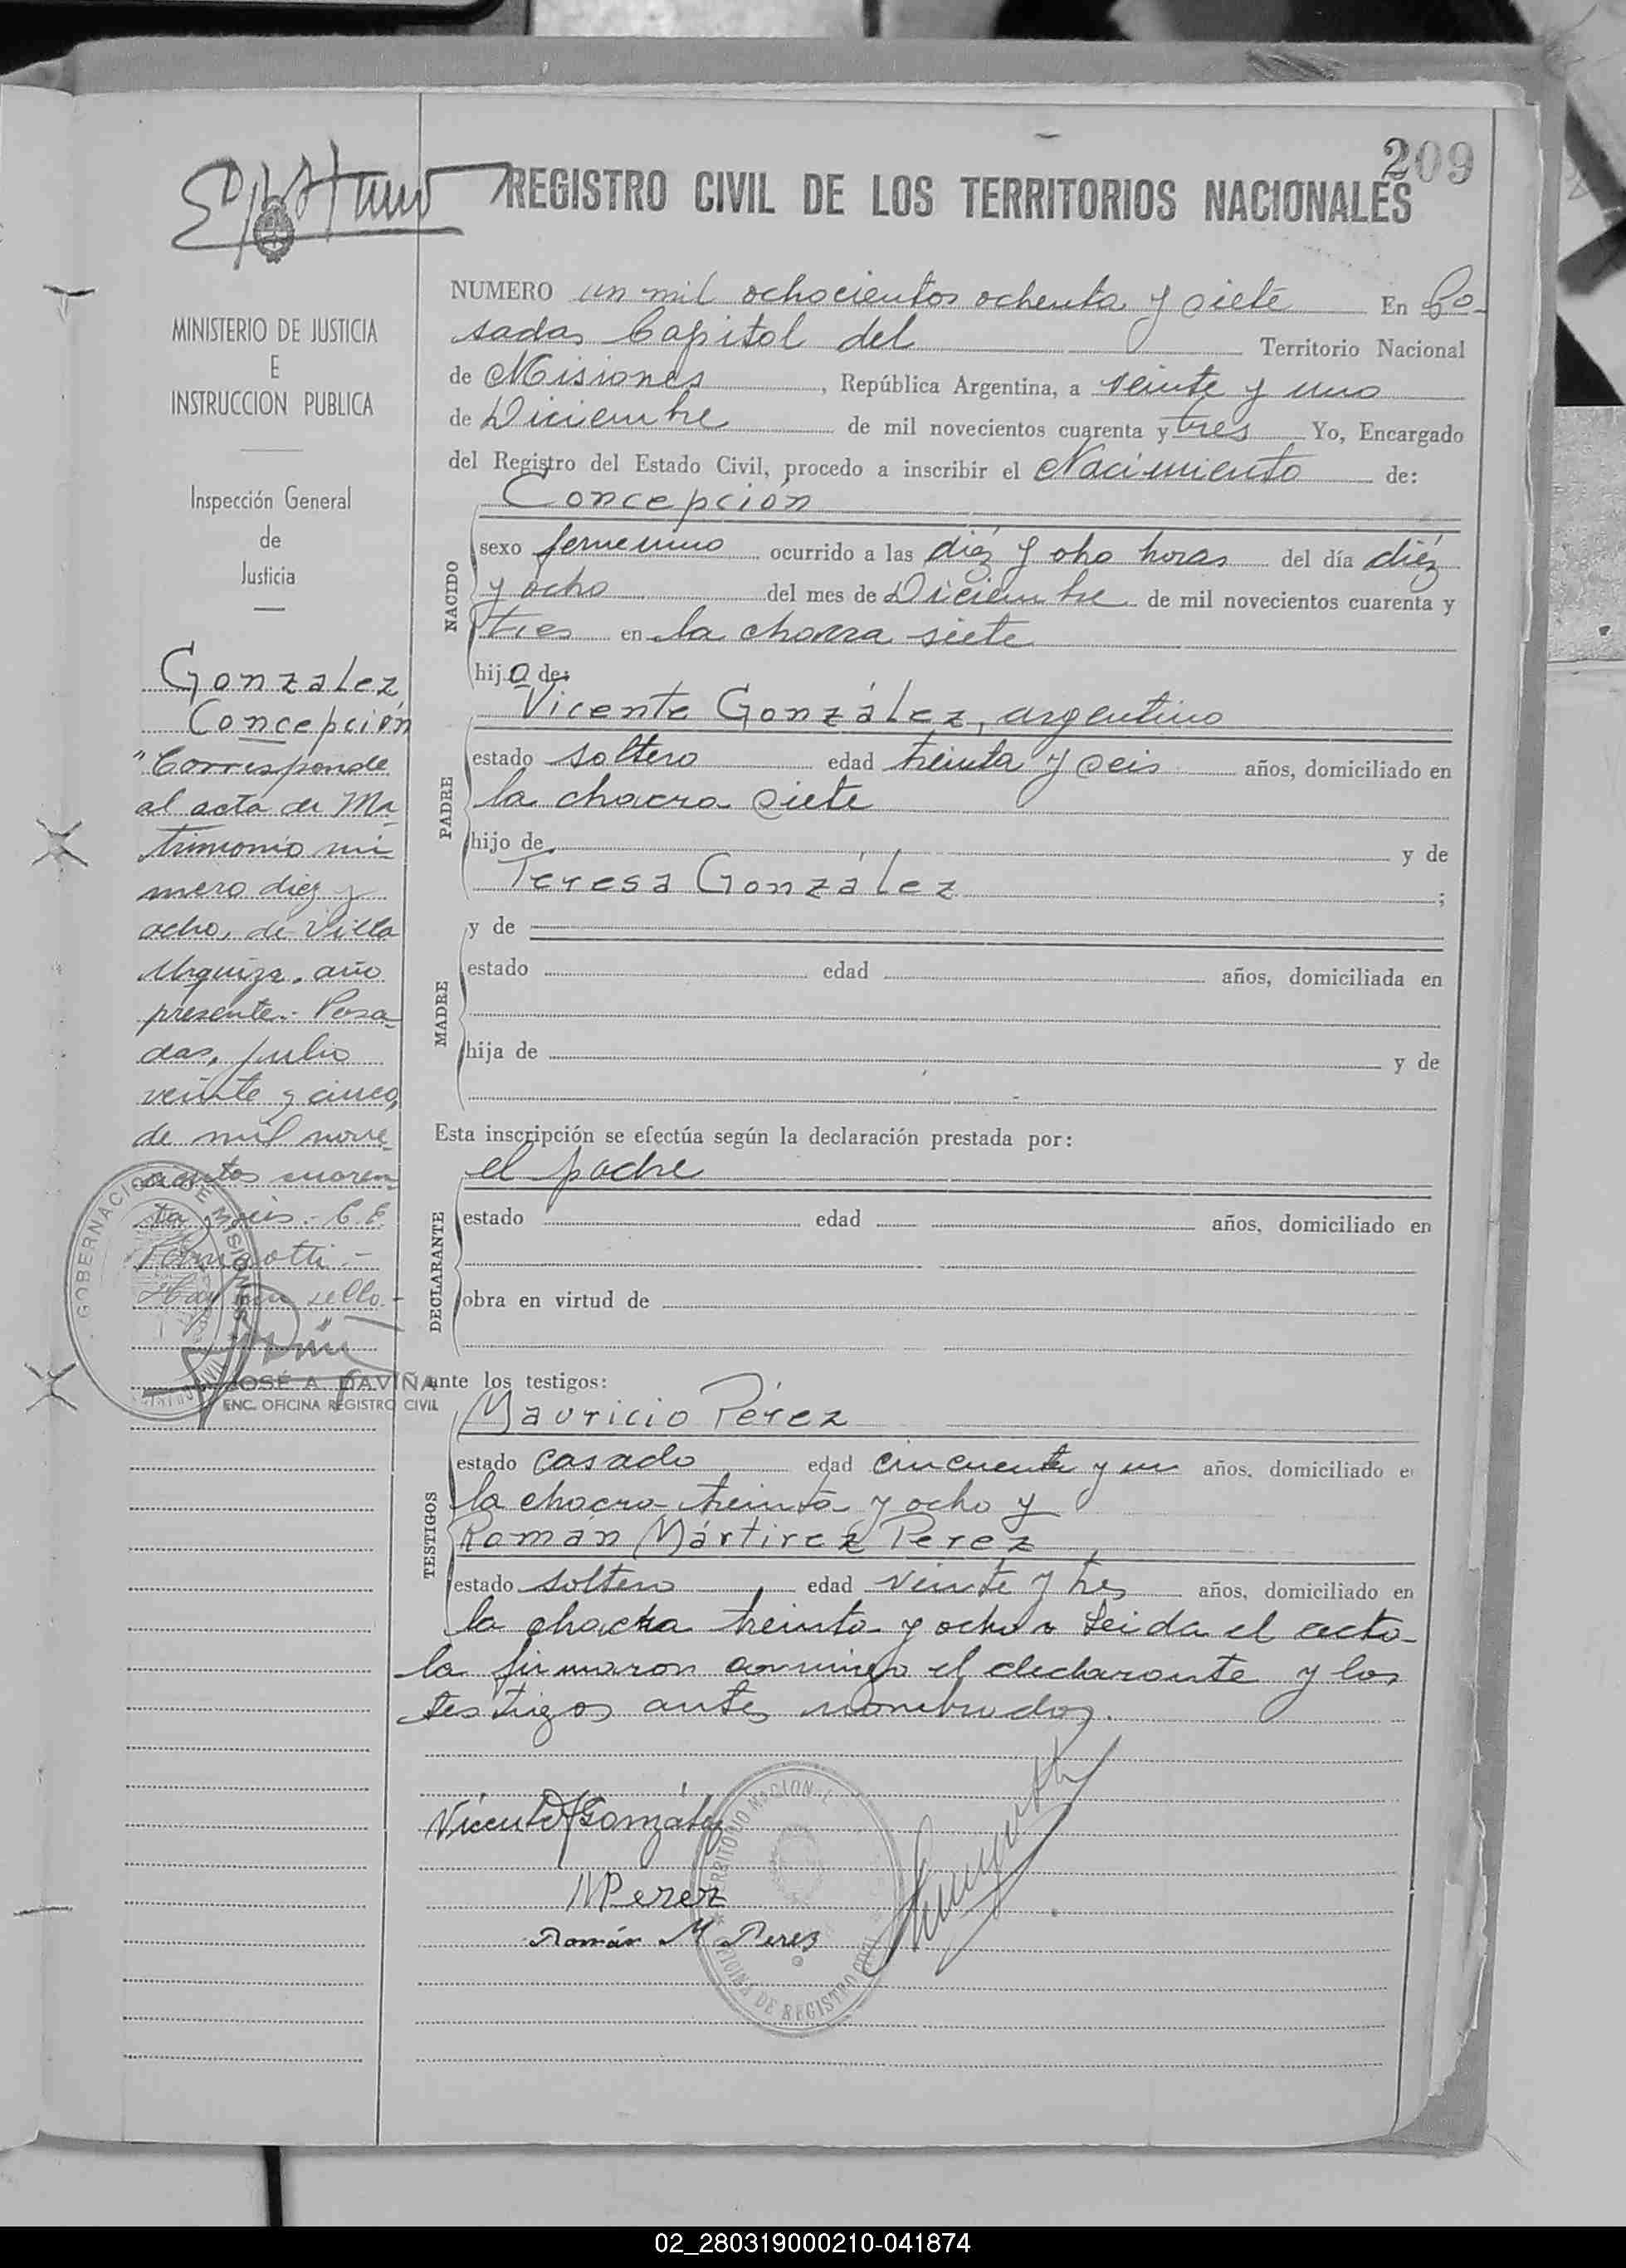 209
REGISTRO CIVIL DE LOS TERRITORIOS NACIONALES
MINISTERIO DE JUSTICIA
E
INSTRUCCION PUBLICA
Inspección General
de
Justicia
Gonzalez
Concepción
"Corresponde
al acta de Ma-
trimonio nú-
mero diez y
ocho, de Villa
Urquiza, año
presente.- Posa-
das, Julio
veinte y cinco,
de mil nove-
cientos cuaren-
ta y seis.- C E
Hay un sello.-
GOBERNACION DE MISIONES
JOSÉ A. DAVIÑA
ENC. OFICINA REGISTRO CIVIL
NUMERO un mil ochocientos ochenta y siete En Po-
sadas Capital del Territorio Nacional
de Misiones, República Argentina, a veinte y uno
de Diciembre de mil novecientos cuarenta y tres Yo, Encargado
del Registro del Estado Civil, procedo a inscribir el Nacimiento de:
Concepción
NACIDO
sexo femenino ocurrido a las diéz y oho horas del día diéz
y ocho del mes de Diciembre de mil novecientos cuarenta y
tres en la chacra siete
hija de:
Vicente González, argentino
PADRE
estado soltero edad treinta y seis años, domiciliado en
la chacra siete
hijo de y de
Teresa González ;
y de
MADRE
estado edad años, domiciliada en
hija de y de
Esta inscripción se efectúa según la declaración prestada por:
el padre
DECLARANTE
estado edad años, domiciliado en
obra en virtud de
ante los testigos:
Mauricio Pérez
TESTIGOS
estado casado edad cincuenta y un años, domiciliado e
la chacra treinta y ocho y
Román Mártirez Perez
estado soltero edad veinte y tres años, domiciliado en
la chacra treinta y ocho Leida el acta
la firmaron conmigo el declarante y los
testigos antes nombrados.
Vicente González
M Perez
Román M Perez
TERRITORIO NACIONAL
OFICINA DE REGISTRO CIVIL
02_280319000210-041874